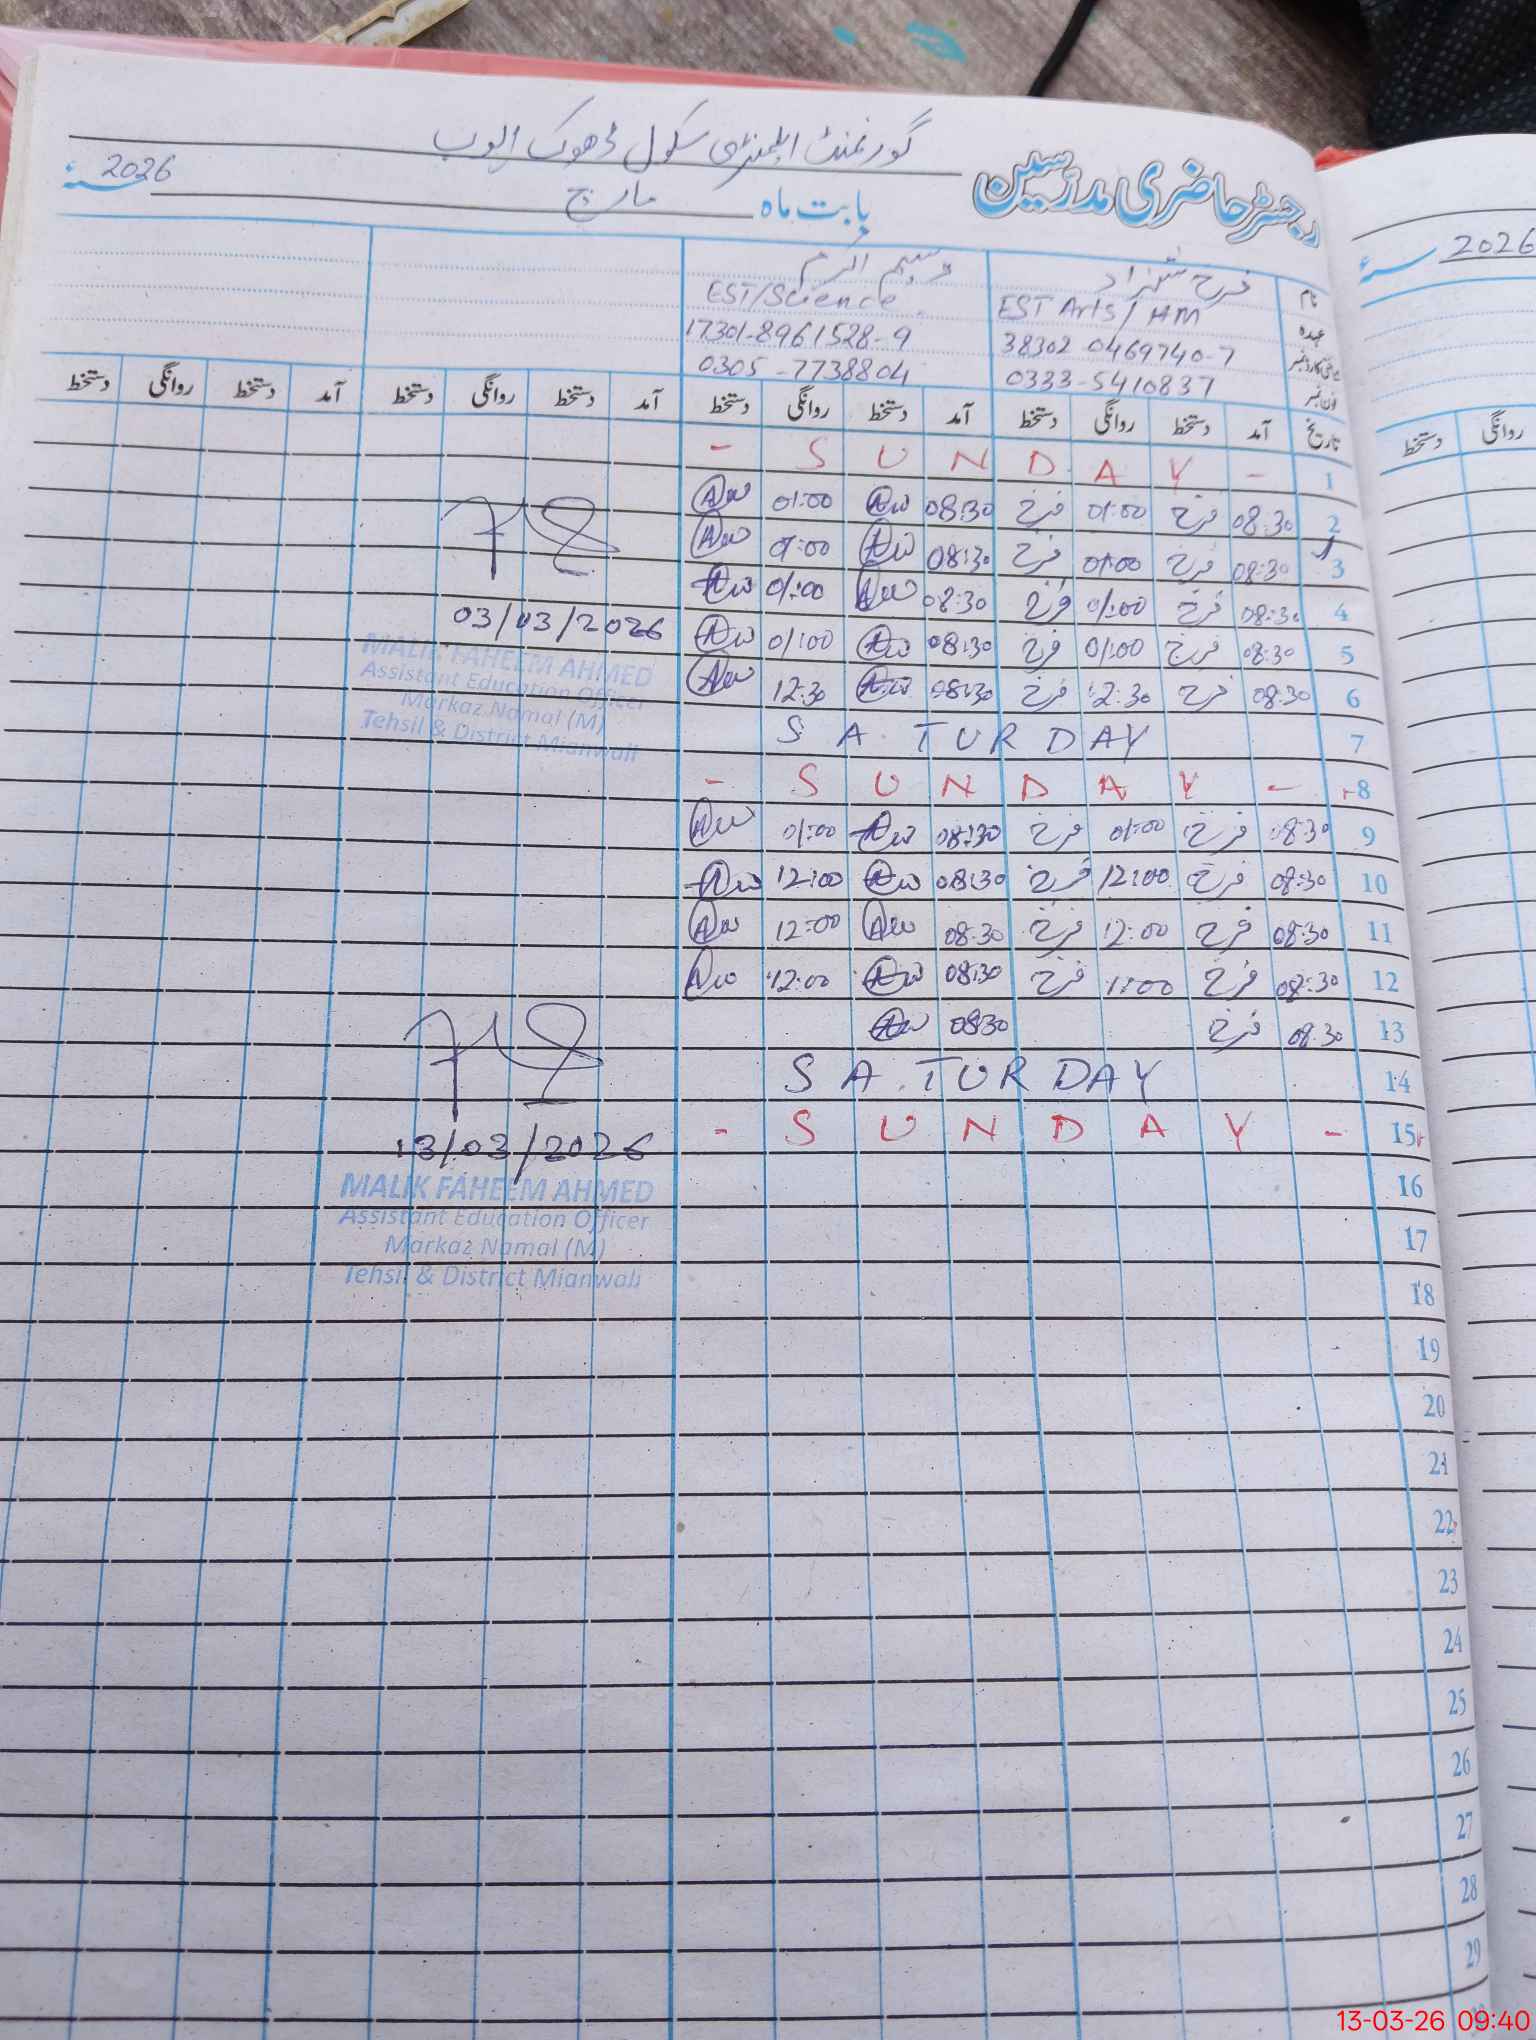 گورنمنٹ ایلمنٹری سکول ڈھوک ایوب
رجسٹر حاضری مدرسین
بابت ماہ مارچ 2026ء
2026
نام فرح شہزاد وسیم اکرم
عہدہ EST Arts / HM EST/Science
38302-0469740-7 17301-8961528-9
فون نمبر 0333-5410837 0305-7738804
تاریخ آمد دستخط روانگی دستخط آمد دستخط روانگی دستخط آمد دستخط روانگی دستخط آمد دستخط روانگی دستخط
روانگی دستخط
1 - S U N D A Y -
2 08:30 فرح 01:00 فرح 08:30 Aw 01:00 Aw
3 08:30 فرح 01:00 فرح 08:30 Aw 01:00 Aw
4 08:30 فرح 01:00 فرح 08:30 Aw 01:00 Aw
5 08:30 فرح 01:00 فرح 08:30 Aw 01:00 Aw
6 08:30 فرح 12:30 فرح 08:30 Aw 12:30 Aw
7 S A T U R D A Y
8 - S U N D A Y -
9 08:30 فرح 01:00 فرح 08:30 Aw 01:00 Aw
10 08:30 فرح 12:00 فرح 08:30 Aw 12:00 Aw
11 08:30 فرح 12:00 فرح 08:30 Aw 12:00 Aw
12 08:30 فرح 11:00 فرح 08:30 Aw 12:00 Aw
13 08:30 فرح 08:30 Aw
14 S A T U R D A Y
15 - S U N D A Y -
16
17
18
19
20
21
22
23
24
25
26
27
28
29
03/03/2026
MALIK FAHEEM AHMED
Assistant Education Officer
Markaz Namal (M)
Tehsil & District Mianwali
13/03/2026
MALIK FAHEEM AHMED
Assistant Education Officer
Markaz Namal (M)
Tehsil & District Mianwali
13-03-26 09:40